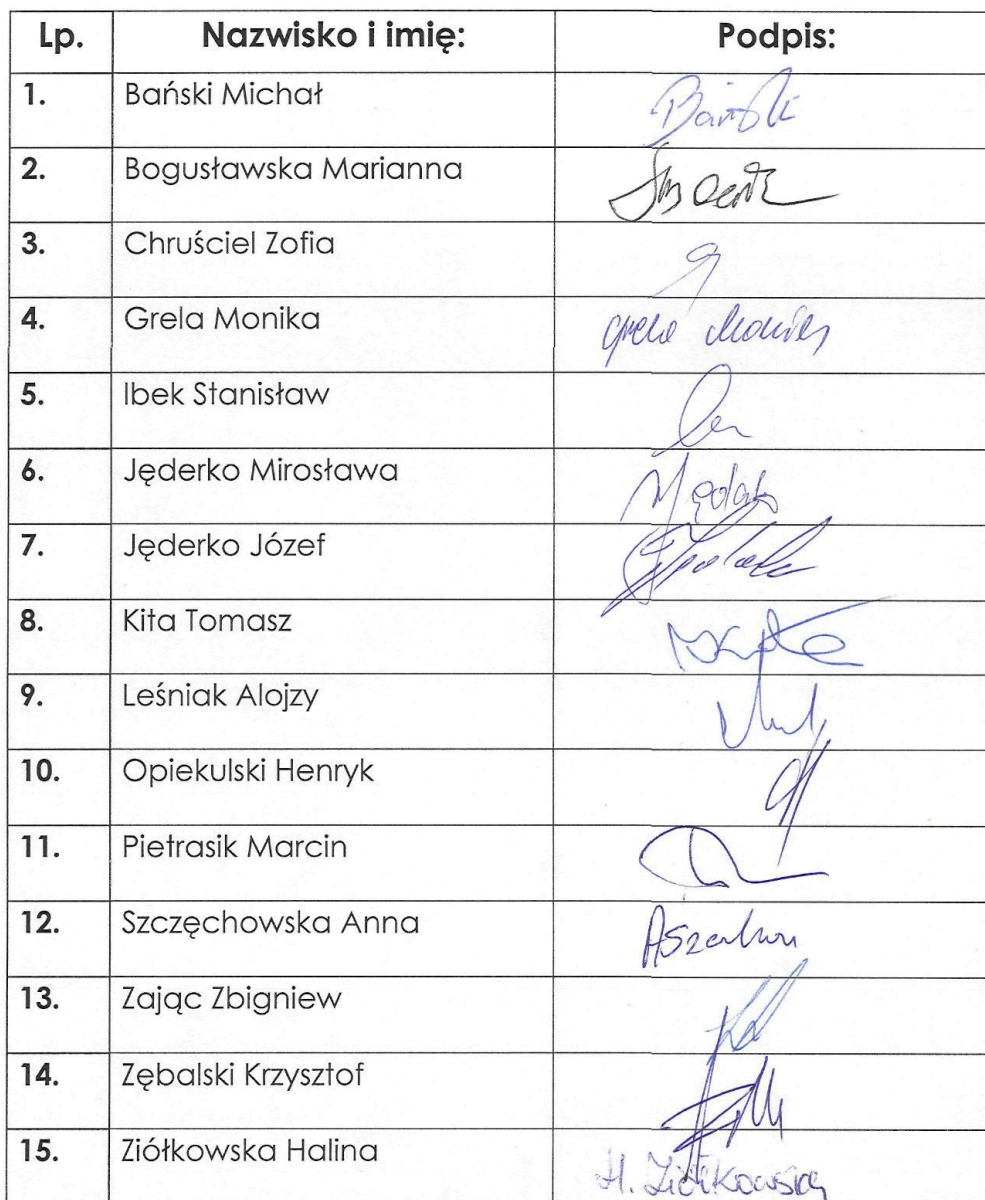 Lp. Nazwisko i imię: Podpis:
1. Bański Michał Bański
2. Bogusławska Marianna
3. Chruściel Zofia
4. Grela Monika Grela Monika
5. Ibek Stanisław
6. Jęderko Mirosława
7. Jęderko Józef
8. Kita Tomasz
9. Leśniak Alojzy
10. Opiekulski Henryk
11. Pietrasik Marcin
12. Szczęchowska Anna
13. Zając Zbigniew
14. Zębalski Krzysztof
15. Ziółkowska Halina H. Ziółkowska